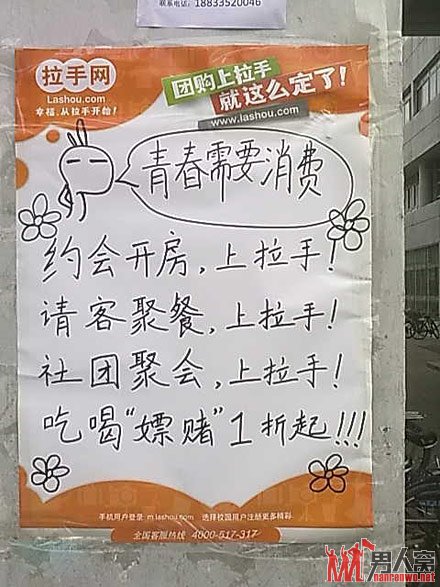 联系电话：18833520046
拉手网
Lashou.com
幸福，从拉手开始！
团购上拉手
就这么定了！
www.lashou.com
青春需要消费
约会开房，上拉手！
请客聚餐，上拉手！
社团聚会，上拉手！
吃喝“嫖赌”1折起!!!
手机用户登录 m.lashou.com 选择校园用户注册更多精彩
全国客服热线 4000-517-317
男人窝
nanrenwo.net